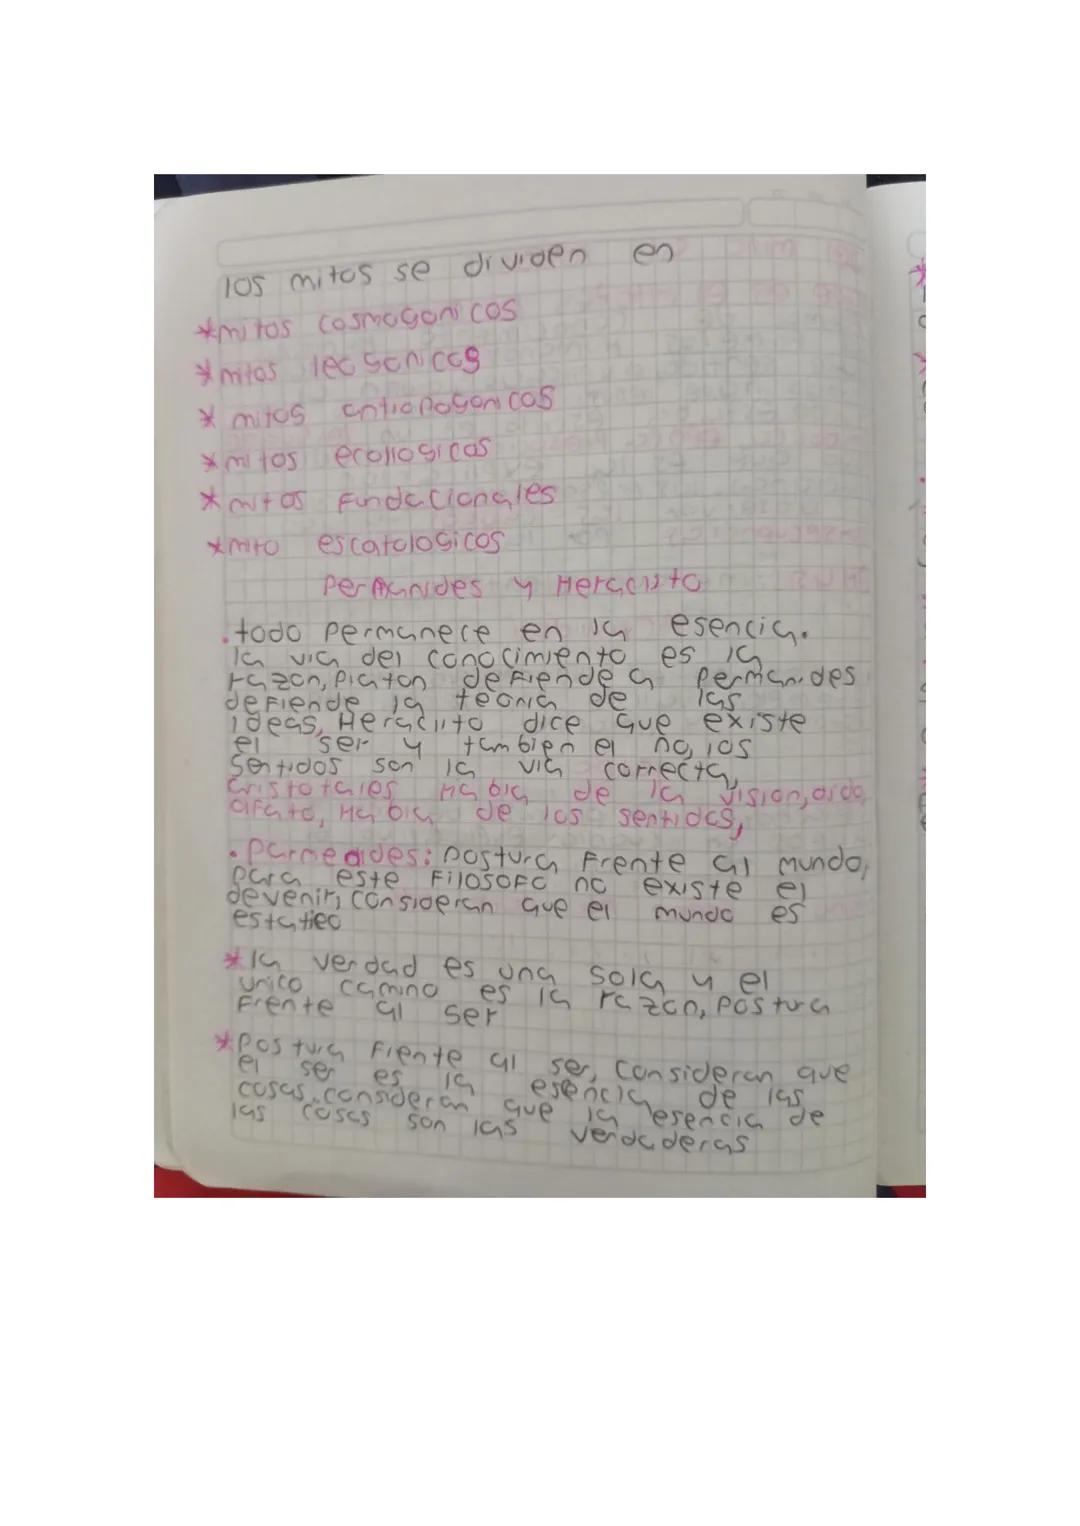 los mitos se dividen en
*mitos cosmogonicos
*mitos teogonicos
* mitos antropogonicos
*mitos ecollogicos
*mitos Fundacionales
*mito escatologicos
Permanides y Heraclito
.todo permanece en la esencia.
la via del conocimiento es la
razon, Platon defiende a permanides
defiende la teoria de las
ideas, Heraclito dice que existe
el ser y tambien el no, los
sentidos son la via correcta,
aristotales Habla de la vision, oido,
olfato, Habla de los sentidos,
.parmenides: postura Frente al mundo,
para este Filosofo no existe el
devenir, consideran que el mundo es
estatico
*la verdad es una sola y el
unico camino es la razon, postura
Frente al ser
*postura Frente al ser, consideran que
el ser es la esencia de las
cosas, consideran que la esencia de
las cosas son las verdaderas